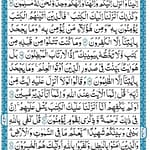 اُنْزِلَ اِلَيْنَا وَاُنْزِلَ اِلَيْكُمْ وَاِلٰهُنَا وَاِلٰهُكُمْ وَاحِدٌ وَّنَحْنُ لَهٗ مُسْلِمُوْنَ
وَكَذٰلِكَ اَنْزَلْنَاۤ اِلَيْكَ الْكِتٰبَ فَالَّذِيْنَ اٰتَيْنٰهُمُ الْكِتٰبَ
يُؤْمِنُوْنَ بِهٖ وَمِنْ هٰۤؤُلَآءِ مَنْ يُّؤْمِنُ بِهٖ وَمَا يَجْحَدُ
بِاٰيٰتِنَاۤ اِلَّا الْكٰفِرُوْنَ وَمَا كُنْتَ تَتْلُوْا مِنْ قَبْلِهٖ مِنْ
كِتٰبٍ وَّلَا تَخُطُّهٗ بِيَمِيْنِكَ اِذًا لَّارْتَابَ الْمُبْطِلُوْنَ بَلْ هُوَ
اٰيٰتٌۢ بَيِّنٰتٌ فِيْ صُدُوْرِ الَّذِيْنَ اُوْتُوا الْعِلْمَ وَمَا يَجْحَدُ
بِاٰيٰتِنَاۤ اِلَّا الظّٰلِمُوْنَ وَقَالُوْا لَوْلَاۤ اُنْزِلَ عَلَيْهِ اٰيٰتٌ
مِّنْ رَّبِّهٖ قُلْ اِنَّمَا الْاٰيٰتُ عِنْدَ اللّٰهِ وَاِنَّمَاۤ اَنَا نَذِيْرٌ مُّبِيْنٌ
اَوَلَمْ يَكْفِهِمْ اَنَّاۤ اَنْزَلْنَا عَلَيْكَ الْكِتٰبَ يُتْلٰى عَلَيْهِمْ اِنَّ
فِيْ ذٰلِكَ لَرَحْمَةً وَّذِكْرٰى لِقَوْمٍ يُّؤْمِنُوْنَ قُلْ كَفٰى بِاللّٰهِ
بَيْنِيْ وَبَيْنَكُمْ شَهِيْدًا يَعْلَمُ مَا فِي السَّمٰوٰتِ وَالْاَرْضِ